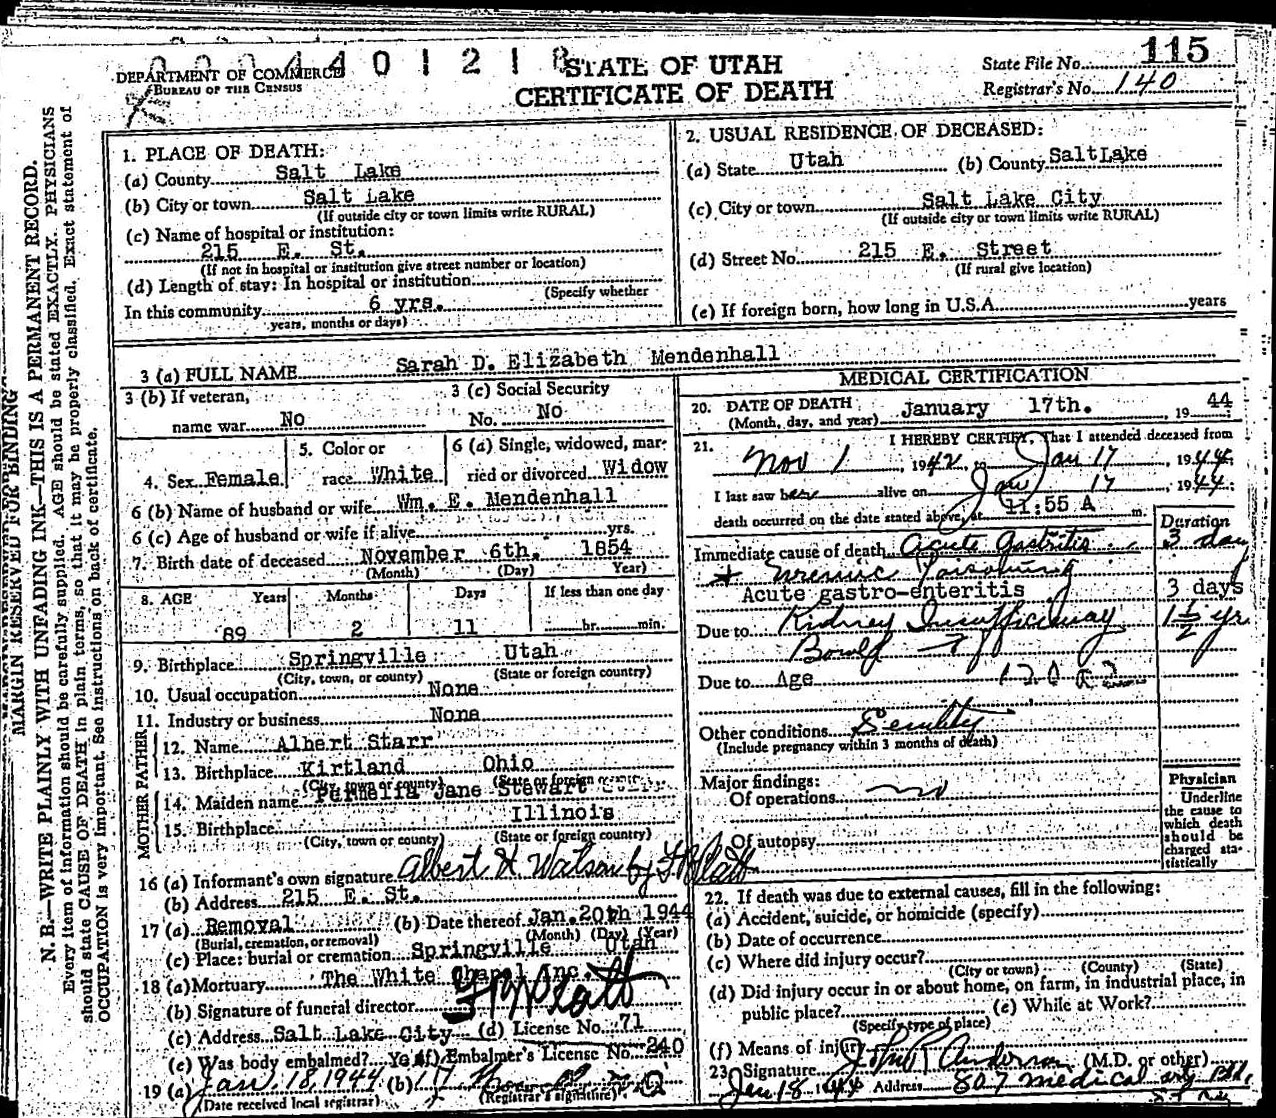 0 0 0 4 4 0 1 2 1 8
115
DEPARTMENT OF COMMERCE
BUREAU OF THE CENSUS
STATE OF UTAH
CERTIFICATE OF DEATH
State File No. 115
Registrar's No. 140
MARGIN RESERVED FOR BINDING
N. B.—WRITE PLAINLY WITH UNFADING INK—THIS IS A PERMANENT RECORD.
Every item of information should be carefully supplied. AGE should be stated EXACTLY. PHYSICIANS
should state CAUSE OF DEATH in plain terms, so that it may be properly classified. Exact statement of
OCCUPATION is very important. See instructions on back of certificate.
1. PLACE OF DEATH:
(a) County Salt Lake
(b) City or town Salt Lake
(If outside city or town limits write RURAL)
(c) Name of hospital or institution:
215 E. St.
(If not in hospital or institution give street number or location)
(d) Length of stay: In hospital or institution
(Specify whether
In this community 6 yrs.
years, months or days)
2. USUAL RESIDENCE OF DECEASED:
(a) State Utah (b) County SaltLake
(c) City or town Salt Lake City
(If outside city or town limits write RURAL)
(d) Street No. 215 E. Street
(If rural give location)
(e) If foreign born, how long in U.S.A. years
3 (a) FULL NAME Sarah D. Elizabeth Mendenhall
3 (b) If veteran,
name war No
3 (c) Social Security
No. No
4. Sex Female
5. Color or
race White
6 (a) Single, widowed, mar-
ried or divorced Widow
6 (b) Name of husband or wife Wm. E. Mendenhall
6 (c) Age of husband or wife if alive yrs.
7. Birth date of deceased November 6th. 1854
(Month) (Day) Year)
8. AGE Years Months Days If less than one day
89 2 11 hr. min.
9. Birthplace Springville Utah
(City, town, or county) (State or foreign country)
10. Usual occupation None
11. Industry or business None
FATHER
12. Name Albert Starr
13. Birthplace Kirtland Ohio
(City, town or county) (State or foreign country)
MOTHER
14. Maiden name Permelia Jane Stewart
15. Birthplace Illinois
(City, town, or county) (State or foreign country)
16 (a) Informant's own signature Albert H. Watson by Platt
(b) Address 215 E. St.
17 (a) Removal (b) Date thereof Jan. 20th 1944
(Burial, cremation, or removal) (Month) (Day) (Year)
(c) Place: burial or cremation Springville Utah
18 (a) Mortuary The White Chapel Inc.
(b) Signature of funeral director Platt
(c) Address Salt Lake City (d) License No. 71
(e) Was body embalmed? Yes (f) Embalmer's License No. 240
19 (a) Jan. 18, 1944 (b)
(Date received local registrar) (Registrar's signature)
MEDICAL CERTIFICATION
20. DATE OF DEATH
(Month, day, and year) January 17th. , 19 44
21. I HEREBY CERTIFY, That I attended deceased from
Nov 1 , 1942, to Jan 17 , 1944.
I last saw her alive on Jan 17 , 1944.
death occurred on the date stated above, at 11:55 A m.
Duration
Immediate cause of death Acute Gastritis 3 day
Uremic Poisoning
Acute gastro-enteritis 3 days
Due to Kidney Insufficiency 1 1/2 yr
Due to Age
Other conditions Senility
(Include pregnancy within 3 months of death)
Major findings:
Of operations no
Of autopsy
Physician
Underline
the cause to
which death
should be
charged sta-
tistically
22. If death was due to external causes, fill in the following:
(a) Accident, suicide, or homicide (specify)
(b) Date of occurrence
(c) Where did injury occur?
(City or town) (County) (State)
(d) Did injury occur in or about home, on farm, in industrial place, in
public place? (e) While at Work?
(Specify type of place)
(f) Means of injury
23. Signature John R Anderson (M.D. or other)
Jan 18 1944 Address 807 medical arts Bld.